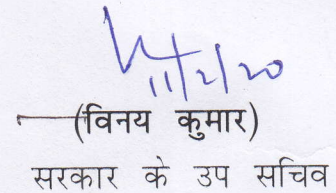 11/2/20
(विनय कुमार)
सरकार के उप सचिव